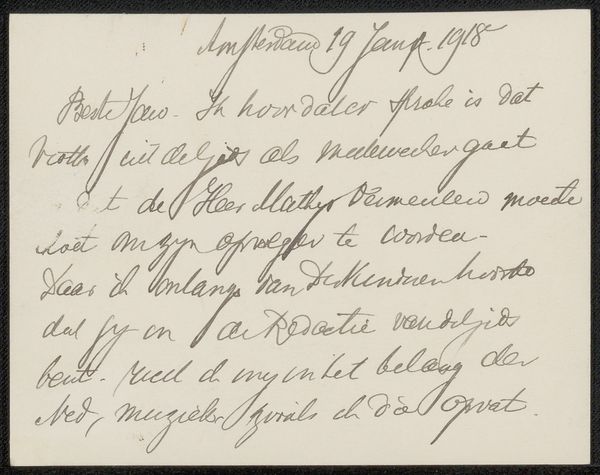 Amsterdam 19 Jan. 1918
Beste Jan. Ik hoor dat er sprake is dat
uit de gids als medewerker gaat
t de Heer Mathys Vermeulen moeite
doet om zyn opvolger te worden -
Daar ik onlangs van Derkinderen hoorde
dat gy in de Redactie van de gids
bent. wil ik my in het belang der
Ned, muziek zooals ik die opvat.